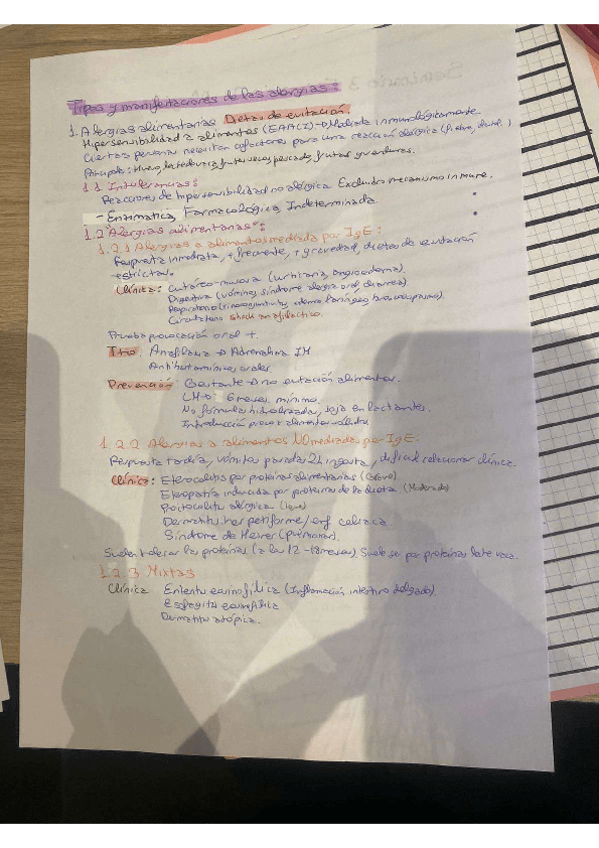 Tipos y manifestaciones de las alergias:
1. Alergias alimentarias Dietas de evitación
Hipersensibilidad a alimentos (EAACI) → Mediada inmunológicamente
Ciertas personas necesitan cofactores para una reacción alérgica (
Principales: Huevo, leche de vaca, frutos secos, pescado, frutas y verduras.
1.1 Intolerancias:
Reacciones de hipersensibilidad no alérgica. Excluido mecanismo inmune.
- Enzimática, Farmacológica, Indeterminada.
1.2 Alergias alimentarias:
1.2.1 Alergias a alimentos mediada por IgE:
Respuesta inmediata, + frecuente, + gravedad, dietas de evitación
estrictas.
Clínica: cutáneo-mucosa (urticaria, angioedema).
Digestiva (vómitos, síndrome alergia oral, diarrea).
Respiratorio (rinoconjuntivitis, edema laríngeo, broncoespasmo)
Circulatorio shock anafiláctico.
Prueba provocación oral +.
Ttto: Anafilaxia → Adrenalina IM
Antihistamínicos orales
Prevención: Gestante → no evitación alimentos.
LM → 6 meses mínimo.
No fórmulas hidrolizadas, soja en lactantes.
Introducción precoz alimentos sólidos
1.2.2 Alergias a alimentos NO mediada por IgE:
Respuesta tardía, vómitos pasadas 2h ingesta, difícil relacionar clínica.
Clínica: Eterocolitis por proteínas alimentarias (Grave).
Eteropatía inducida por proteínas de la dieta (Moderado)
Proctocolitis alérgica (leve)
Dermatitis herpetiforme/enf celiaca.
Síndrome de Heiner (pulmonar).
Suelen tolerar las proteínas (a los 12-18 meses). Suele ser por proteínas leche vaca.
1.2.3 Mixtas
Clínica Enteritis eosinofílica (Inflamación intestino delgado).
Esofagitis eosinofílica
Dermatitis atópica.